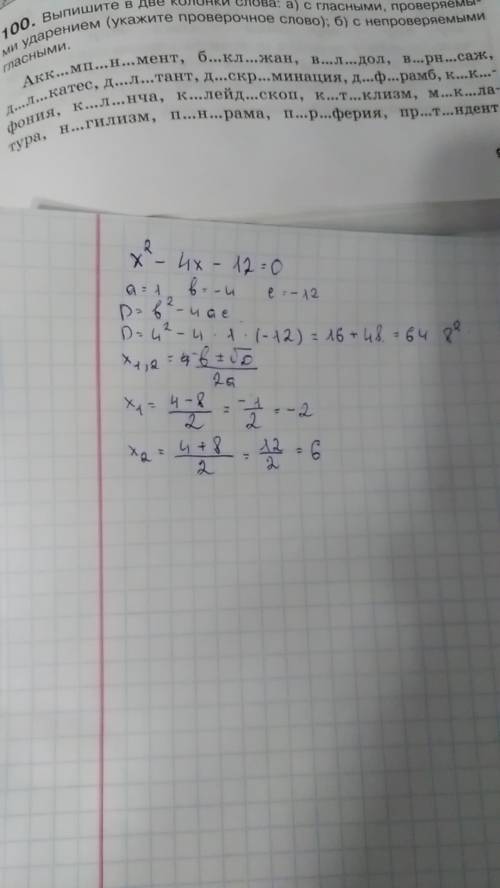 100. Выпишите в две колонки слова: а) с гласными, проверяемы-
ми ударением (укажите проверочное слово); б) с непроверяемыми
гласными.
Акк...мп...н...мент, б...кл...жан, в...л...дол, в...рн...саж,
д...л...катес, д...л...тант, д...скр...минация, д...ф...рамб, к...к...-
фония, к...л...нча, к...лейд...скоп, к...т...клизм, м...к...ла-
тура, н...гилизм, п...н...рама, п...р...ферия, пр...т...ндент
x² - 4x - 12 = 0
a = 1 b = -4 c = -12
D = b² - 4ac
D = 4² - 4 · 1 · (-12) = 16 + 48 = 64 8²
x₁,₂ = -b ± √D / 2a
x₁ = 4 - 8 / 2 = -1 / 2 = -2
x₂ = 4 + 8 / 2 = 12 / 2 = 6